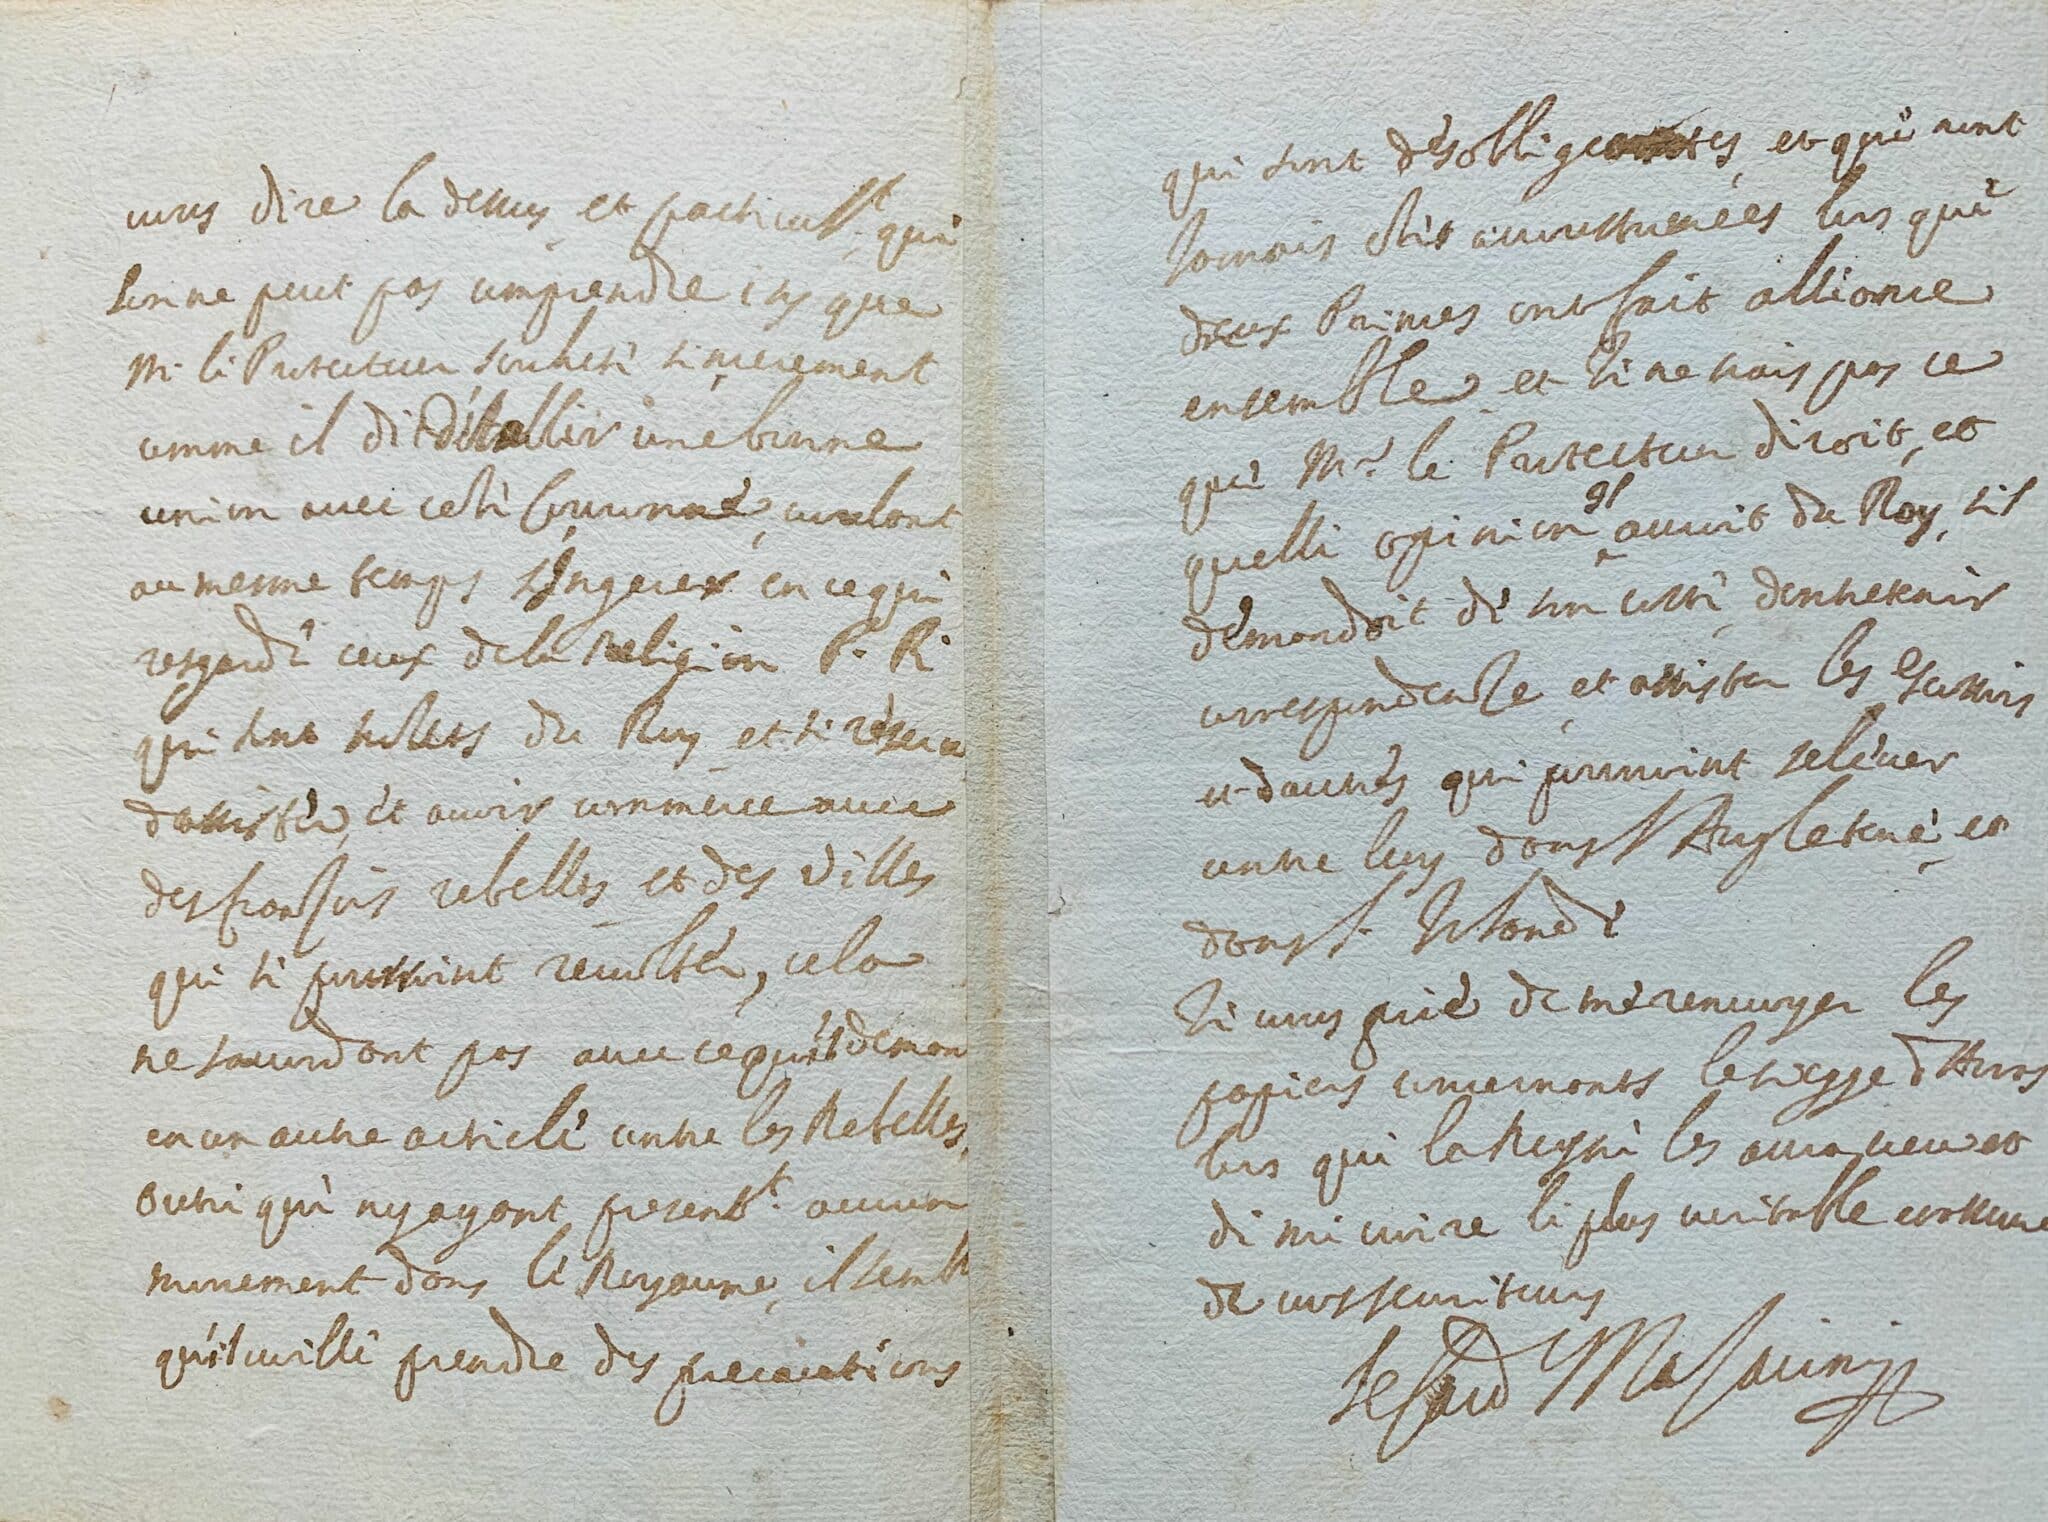 vous dire la dessus, et particul.t que
lon ne peut pas comprendre icy que
Mr le Protecteur souhete sincerement
comme il dit d'establir une bonne
union avec cete Couronne, voulant
au mesme temps s'Ingerer en ce qui
regarde ceux de la Religion P. R.
qui sont suiets du Roy, et se reserva
dassister, et avoir commerce avec
des fransois rebelles, et des villes
qui se pourroint revolter, cela
ne saccordant pas avec ce qu'il deman
en un autre article contre les Rebelles,
outre que ny ayant present.t aucun
mouvement dans le Royaume, il sembl
qu'il veuille prendre des precautions
qui sont desobligeantes, et que nont
Iamais esté accoustumées lors que
deux Princes ont fait alliance
ensemble, et Ie ne sais pas ce
que Mr. le Protecteur diroit, et
quelle opinion il auroit du Roy, sil
demandoit de son costé, dentretenir
correspondense, et assister les Escossois
et dautres qui pourroint selever
contre luy dans l'Angleterre, et
dans l'Irlande
Ie vous prie de me renvoyer les
papiers concernants le siege d'Arras
lors que la Reyne les aura veu et
de me croire le plus veritable
de vos serviteurs
Le Card Mazarini